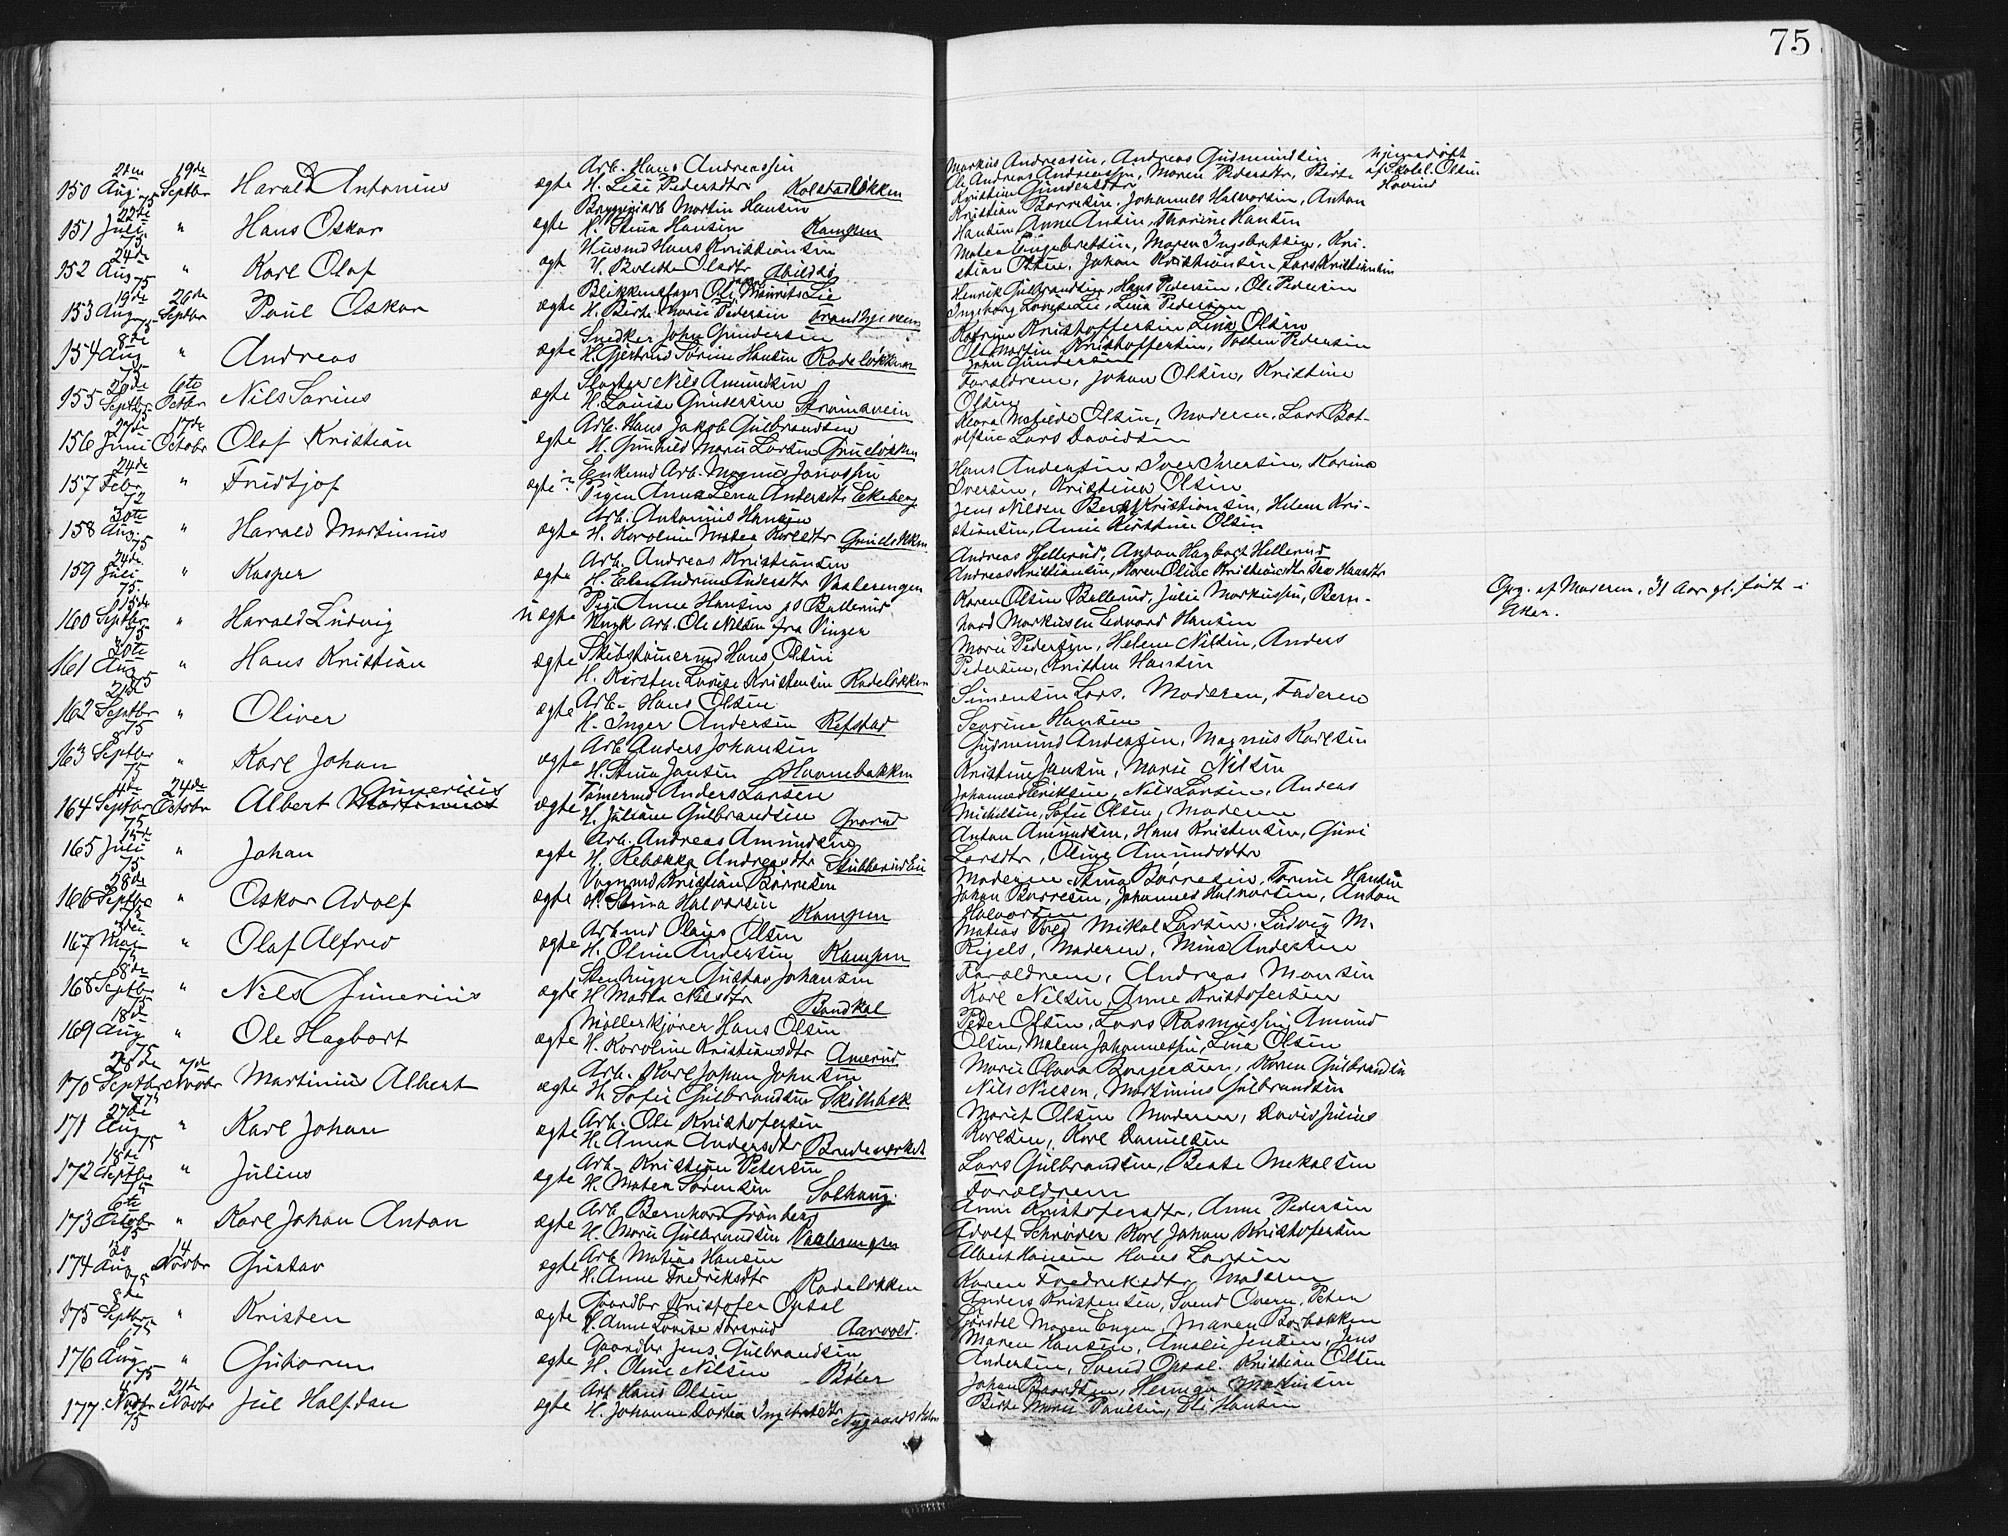 75
21de 19de
150 Aug. 75 Septbr Harald Antonius ægte Arb. Hans Andreassen
H. Lise Pedersdtr Kolstadløkken
Markus Andreasen, Andreas Gudmundsen
Ole Andreas Andreassen, Maren Pedersdtr, Berte
Kristian Gundersdtr
hjemmedøbt
af Skolel. Olsen
Hovind
22de
151 Juli 75 " Hans Oskar ægte Martin Hansen
H. Stina Hansen Kampen
Kristian Børresen, Johannes Halvorsen, Anton
Hansen, Thorine Hansen
24de
152 Aug 75 " Karl Olaf ægt Husmd Hans Kristiansen
H. Bolette Olsdtr Abildsø
Matea Engebretsen, Maren Ingebretsen, Kri-
stian Olsen, Johan Kristiansen Lars Kristiansen
19de 26de
153 Aug 75 Septbr Paul Oskar ægte Blikkenslager Ole Mauritz Lie
H. Berte Marie Pedersen
Henrik Gulbrandsen, Hans Pedersen, Ole Pedersen
Ingeborg Lovise Lie, Lina Pedersen
8de
154 Aug 75 " Andreas ægte Snedker John Gundersen
H. Gjertrud Sørine Hansen Rodeløkken
Katrine Kristoffersen Lina Olsen
Ole Martin Kristoffersen, Pedersen
John Gundersen
155 Septbr 6te Octbr Nils Sarius ægte Slagter Nils Amundsen
H. Lovise Gundersen
Forældrene, Johan Olsen, Kristine
Olsen
27de 17de
156 Juni Octobr Olaf Kristian ægte Arb. Hans Jakob Gulbrandsen
H. Gunhild Marie Larsen Grueløkken
Klara Matilde Olsen, Moderen, Lars Bot-
olfsen Lars Davidsen
24de
157 Febr 72 " Fridtjof ægte Enkemd Arb. Magnus Jonassen
Pigen Anna Lena Andersdtr Ekeberg
Hans Andersen, Iver Iversen, Karina
Iversen, Kristina Olsen
30te
158 Aug. 75 " Harald Martinius ægte Arb. Antonius Hansen
H. Karoline Matea Karlsdtr Grueløkken
Jens Nilsen Kristiansen, Helene Kri-
stiansen, Anne Kirstine Olsen
24de
159 Juli 75 " Kasper ægte Arb. Andreas Kristiansen
H. Elen Andrine Andersdtr Vaalerengen
Andreas Hellerud, Anton Hagbart Hellerud
Andreas Kristiansen, Karen Oline Kristiansdtr Hansdtr
15de
160 Septbr 75 " Harald Ludvig uægte Pige Anne Hansen Ballerud
Ungk. Arb. Ole Nilsen fra Vinger
Karen Olsen Ballerud, Julie Markussen, Bern-
hard Markusen Edvard Hansen
Opg. af Moderen, 31 Aar gl. født i
Aker.
30te
161 Aug 75 " Hans Kristian ægte Skibstømermd Hans Olsen
H. Kirsten Lovise Kristensen Rodeløkken
Marie Pedersen, Helene Nilsen, Anders
Pedersen, Kristen Hansen
21de
162 Septbr 75 " Oliver ægte Arb. Hans Olsen
H. Inger Andersen Refstad
Simensen Lars, Moderen, Faderen
Severine Hansen
8
163 Septbr 75 " Karl Johan ægte Arb Anders Johansen
H. Stina Jansen Havnebakken
Gudmund Andersen, Magnus Karlsen
Kristine Jansen, Marie Nilsen
4de 24de
164 Septbr 75 Octobr Albert Gunerius ægte Tømermd Anders Larsen
H. Juliane Gulbrandsen Grorud
Johannes Eriksen, Nils Larsen, Anders
Mickelsen, Sofie Olsen, Moderen
15de
165 Juli 75 " Johan ægte Arb. Andreas Amundsen
H. Rebekka Andreasdtr Stubberud Eie
Anton Amundsen, Hans Kristensen, Guri
Larsdtr, Oline Amundsdtr
28de
166 Septbr " Oskar Adolf ægte Vognmd Kristian Børresen
H. Stina Halvorsen Kampen
Moderen, Stina Børresen, Torine Hansen
Johan Børresen, Johannes Halvorsen, Anton
Halvorsen
167 Mai 75 " Olaf Alfred ægte Arbmd Olaus Olsen
H. Oline Andersen Kampen
Matias Mikal Larsen, Ludvig M.
Rigels, Moderen, Mina Andersen
8de
168 Septbr 75 " Nils Gunerius ægte Stenhugger Gustav Johansen
H Marta Nilsdtr Bondkal
Forældrene, Andreas Monsen
Karl Nilsen, Anne Kristofersen
18de
169 Aug 75 " Ole Hagbart ægte Møllerkjører Hans Olsen
H. Karoline Kristiansdtr Amerud
Peder Olsen, Lars Rasmussen, Amund
Olsen, Malene Johannessen, Lina Olsen
28de
170 Septbr 75 Novbr Martinius Albert ægte Arb. Karl Johan Johnsen
H. Sofie Gulbrandsen Skilbæk
Marie Olava Børgersen, Karen Gulbrandsen
Nils Nilsen, Martinius Gulbrandsen
27de
171 Aug 75 " Karl Johan ægte Arb. Ole Kristofersen
H. Anna Andersdtr
Marit Olsen Moderen, David Julius
Karlsen, Karl Danielsen
18de
172 Septbr " Julius ægte Arb. Kristian Petersen
H. Matea Sørensen Solhaug.
Lars Gulbrandsen, Beate Mikalsen
Forældrene
6te
173 Octobr 75 " Karl Johan Anton ægte Arb. Bernhard Grønberg
H. Marie Gulbrandsen Vaalerengen
Anne Kristofersdtr, Anne Pedersen
Adolf Schrøder Karl Johan Kristofersen
30 14
174 Aug 75 Novbr Gustav ægte Arb Matias Hansen
H. Anne Fredriksdtr Rodeløkken
Albert Hansen Hans Larsen
Karen Fredriksdtr, Moderen
8de
175 Septbr 75 " Kristen ægte Gaardbr Kristofer Opsal
H. Anne Lovise Aarvold.
Anders Kristensen, Svend Peter
Maren Engen, Maren Bakken
6
176 Aug 75 " Guttorm ægte Gaardbr Jens Gulbrandsen
H. Oline Nilsen Bøler
Maren Hansen, Amalie Jensen, Jens
Andersen, Svend Opsal. Kristian Olsen
21de
177 Novbr 75 Novbr Jul Halfdan ægte Arb Hans Olsen
H. Johanne Dortea Ingebretsdtr
Johan Herman Martinsen
Berte Marie Paulsen, Eli Hansen